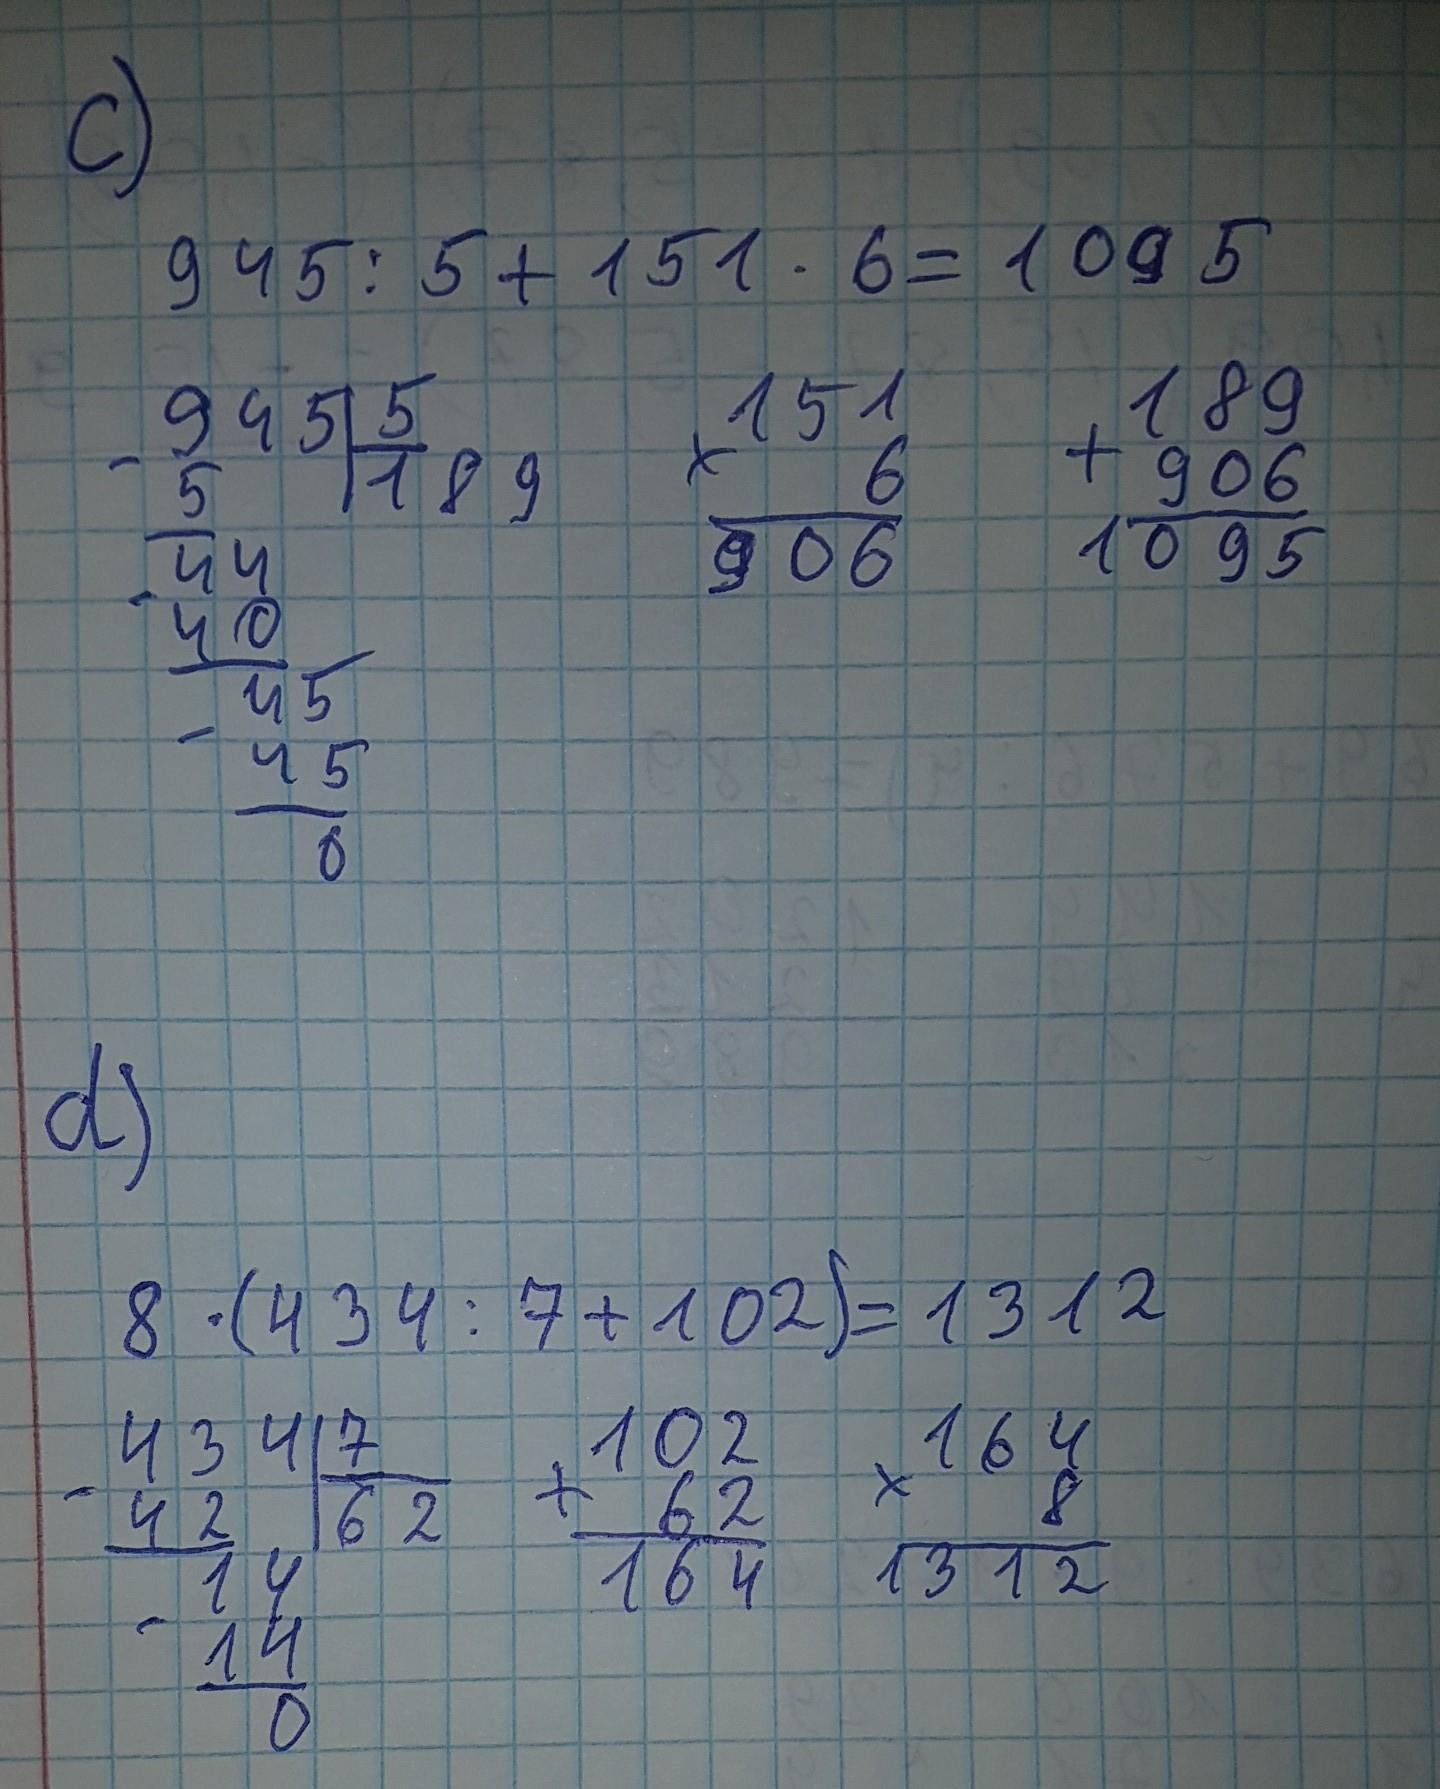 c)
945:5+151·6=1095
945|5 151 189
- 5 189 × 6 + 906
44 906 1095
- 40
45
- 45
0
d)
8·(434:7+102)=1312
434|7 102 164
- 42 62 + 62 × 8
14 164 1312
- 14
0